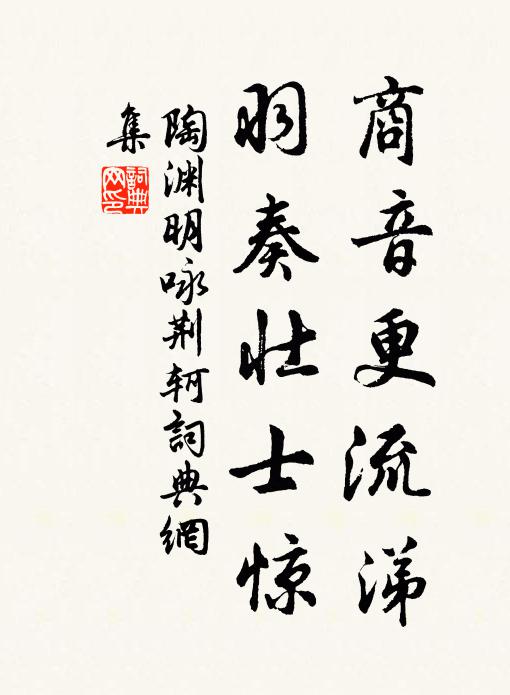 商音更流涕
羽奏壮士惊
陶渊明咏荆轲詞典網
集
詞典
网印